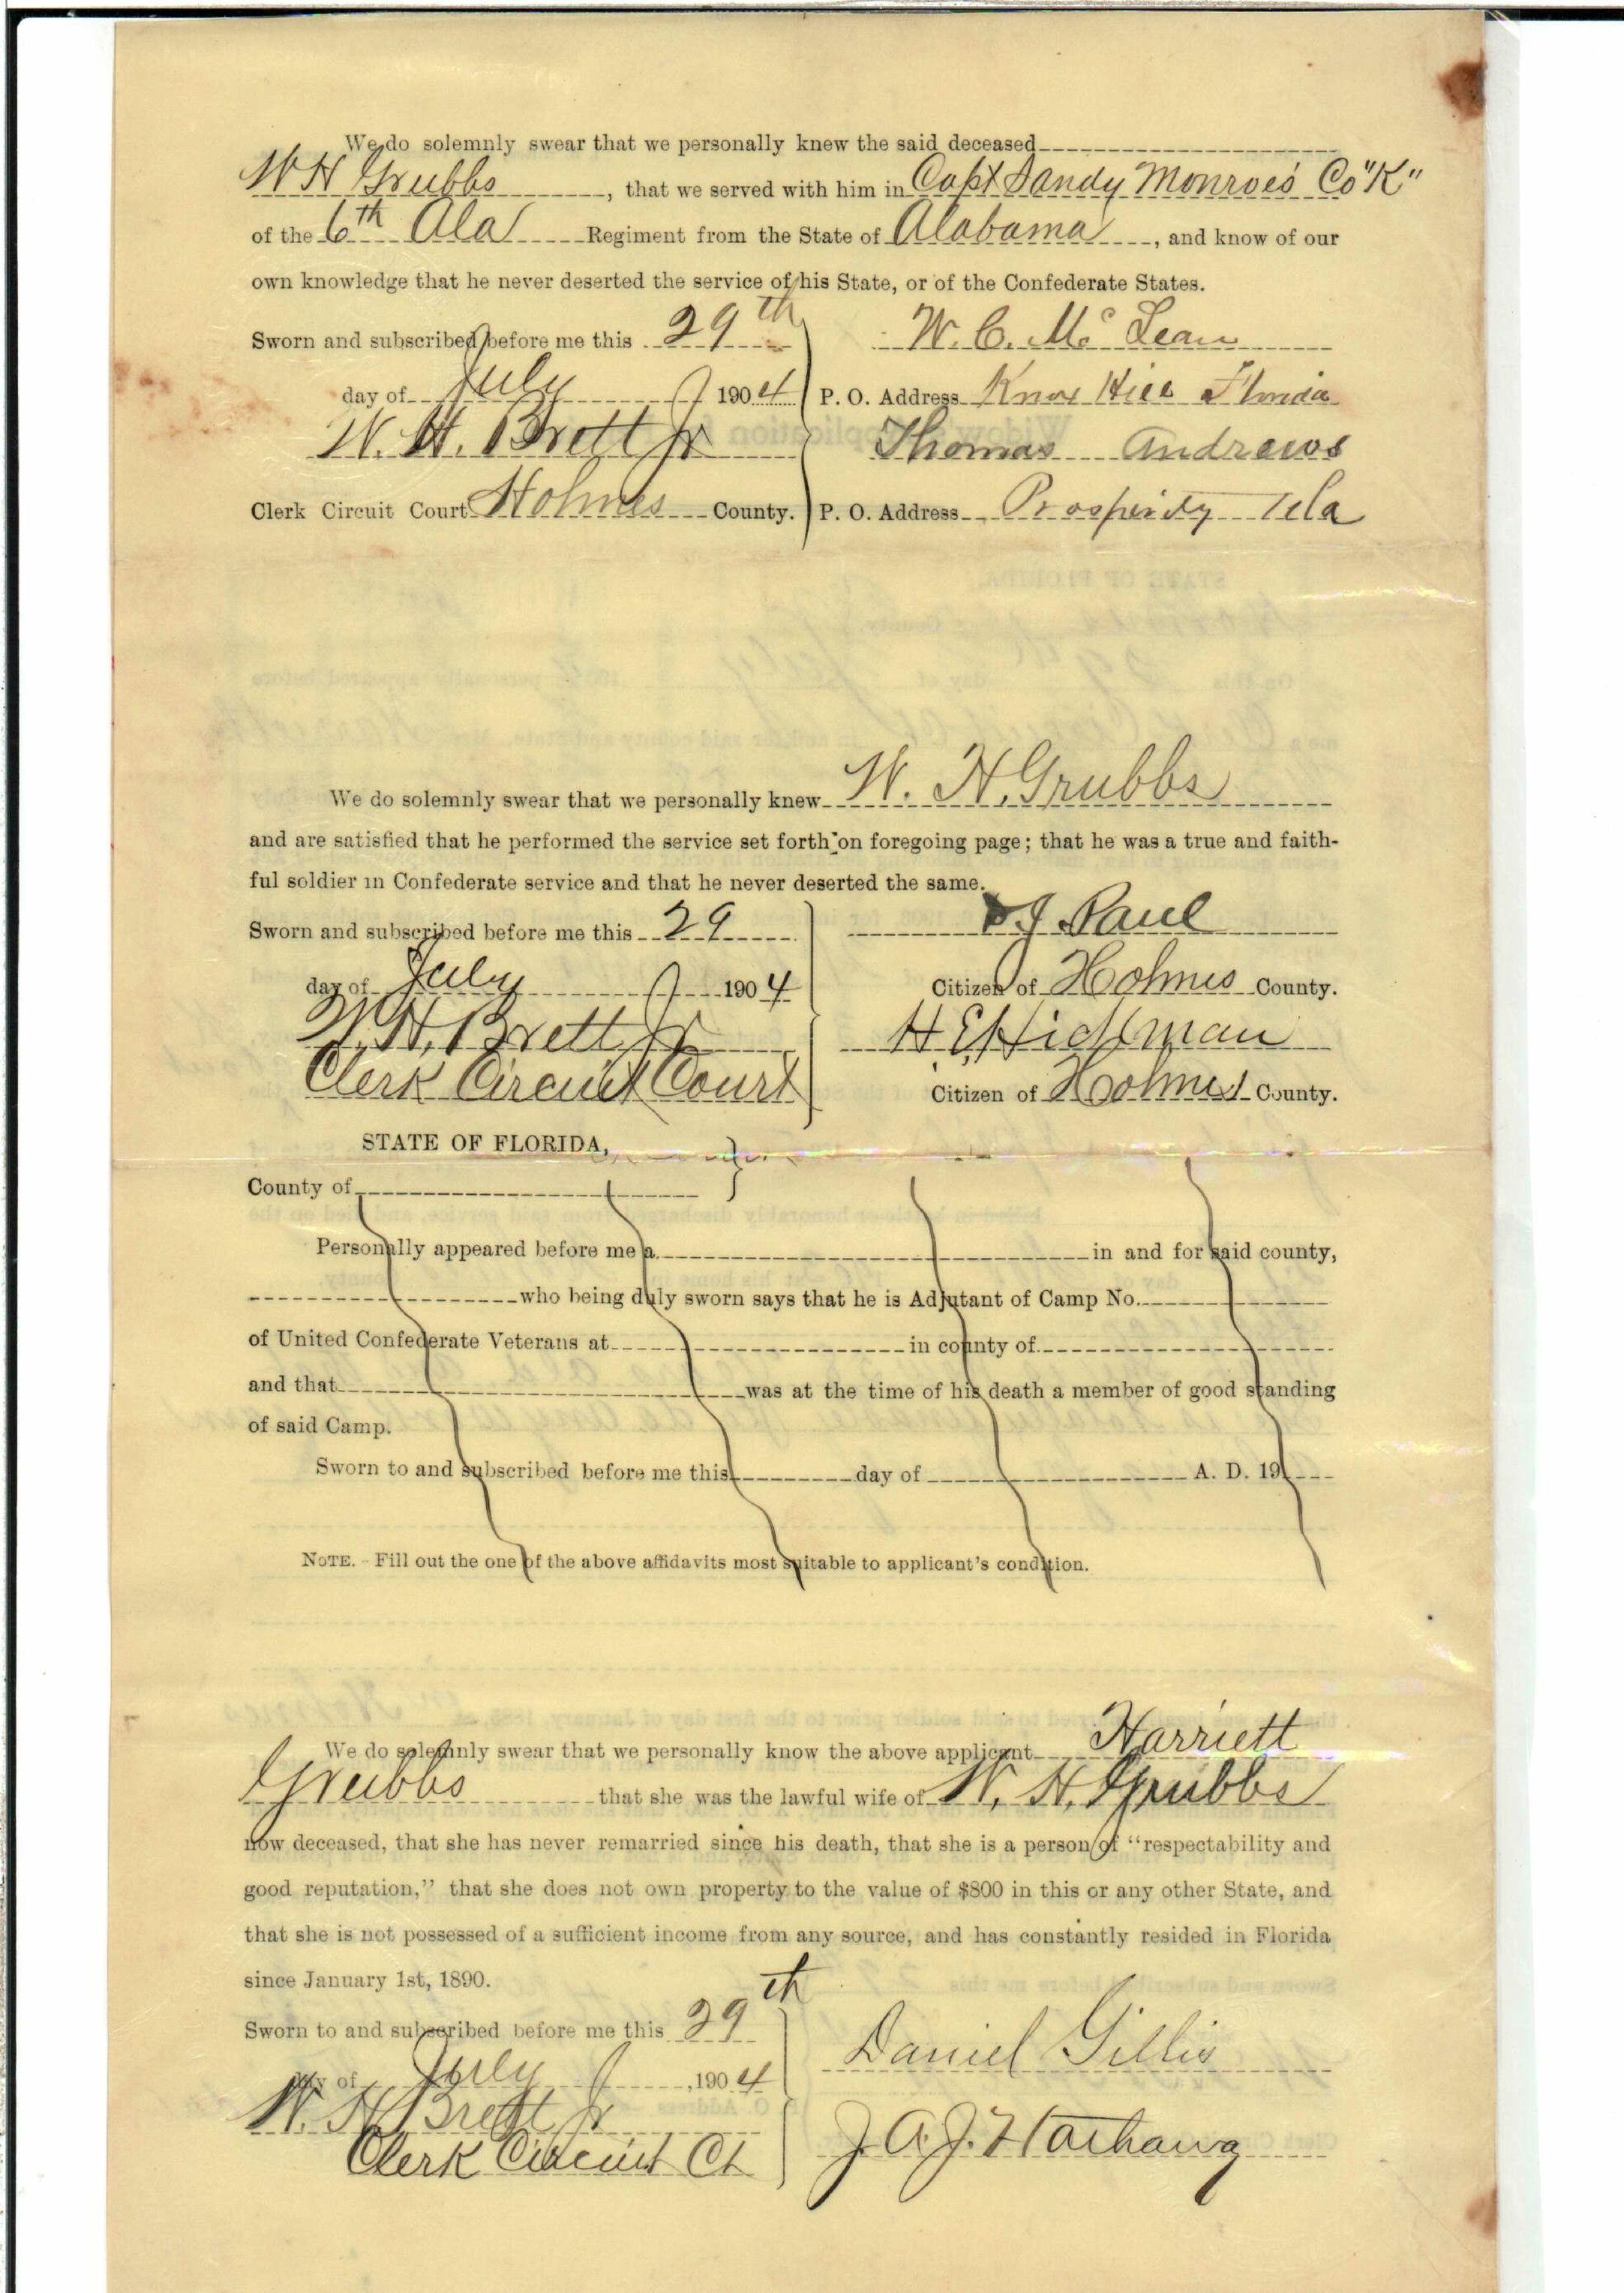 We do solemnly swear that we personally knew the said deceased
W H Grubbs, that we served with him in Capt Sandy Monroe's Co "K"
of the 6th Ala Regiment from the State of Alabama, and know of our
own knowledge that he never deserted the service of his State, or of the Confederate States.
Sworn and subscribed before me this 29th
W. C. Mc Lean
day of July 1904
P. O. Address Knox Hill Florida
W. H. Brett Jr
Thomas Andrews
Clerk Circuit Court Holmes County.
P. O. Address Prosperity Fla
We do solemnly swear that we personally knew W. H. Grubbs
and are satisfied that he performed the service set forth on foregoing page; that he was a true and faith-
ful soldier in Confederate service and that he never deserted the same.
Sworn and subscribed before me this 29
J Paul
day of July 1904
Citizen of Holmes County.
W. H. Brett Jr
H E Hickman
Clerk Circuit Court
Citizen of Holmes County.
STATE OF FLORIDA,
County of
Personally appeared before me a in and for said county,
who being duly sworn says that he is Adjutant of Camp No.
of United Confederate Veterans at in county of
and that was at the time of his death a member of good standing
of said Camp.
Sworn to and subscribed before me this day of A. D. 19
NOTE. - Fill out the one of the above affidavits most suitable to applicant's condition.
We do solemnly swear that we personally know the above applicant Harriett
Grubbs that she was the lawful wife of W. H. Grubbs
now deceased, that she has never remarried since his death, that she is a person of "respectability and
good reputation," that she does not own property to the value of $800 in this or any other State, and
that she is not possessed of a sufficient income from any source, and has constantly resided in Florida
since January 1st, 1890.
Sworn to and subscribed before me this 29th
Daniel Gillis
day of July, 1904
W. H Brett Jr
J. A. J. Hathaway
Clerk Circuit Ct